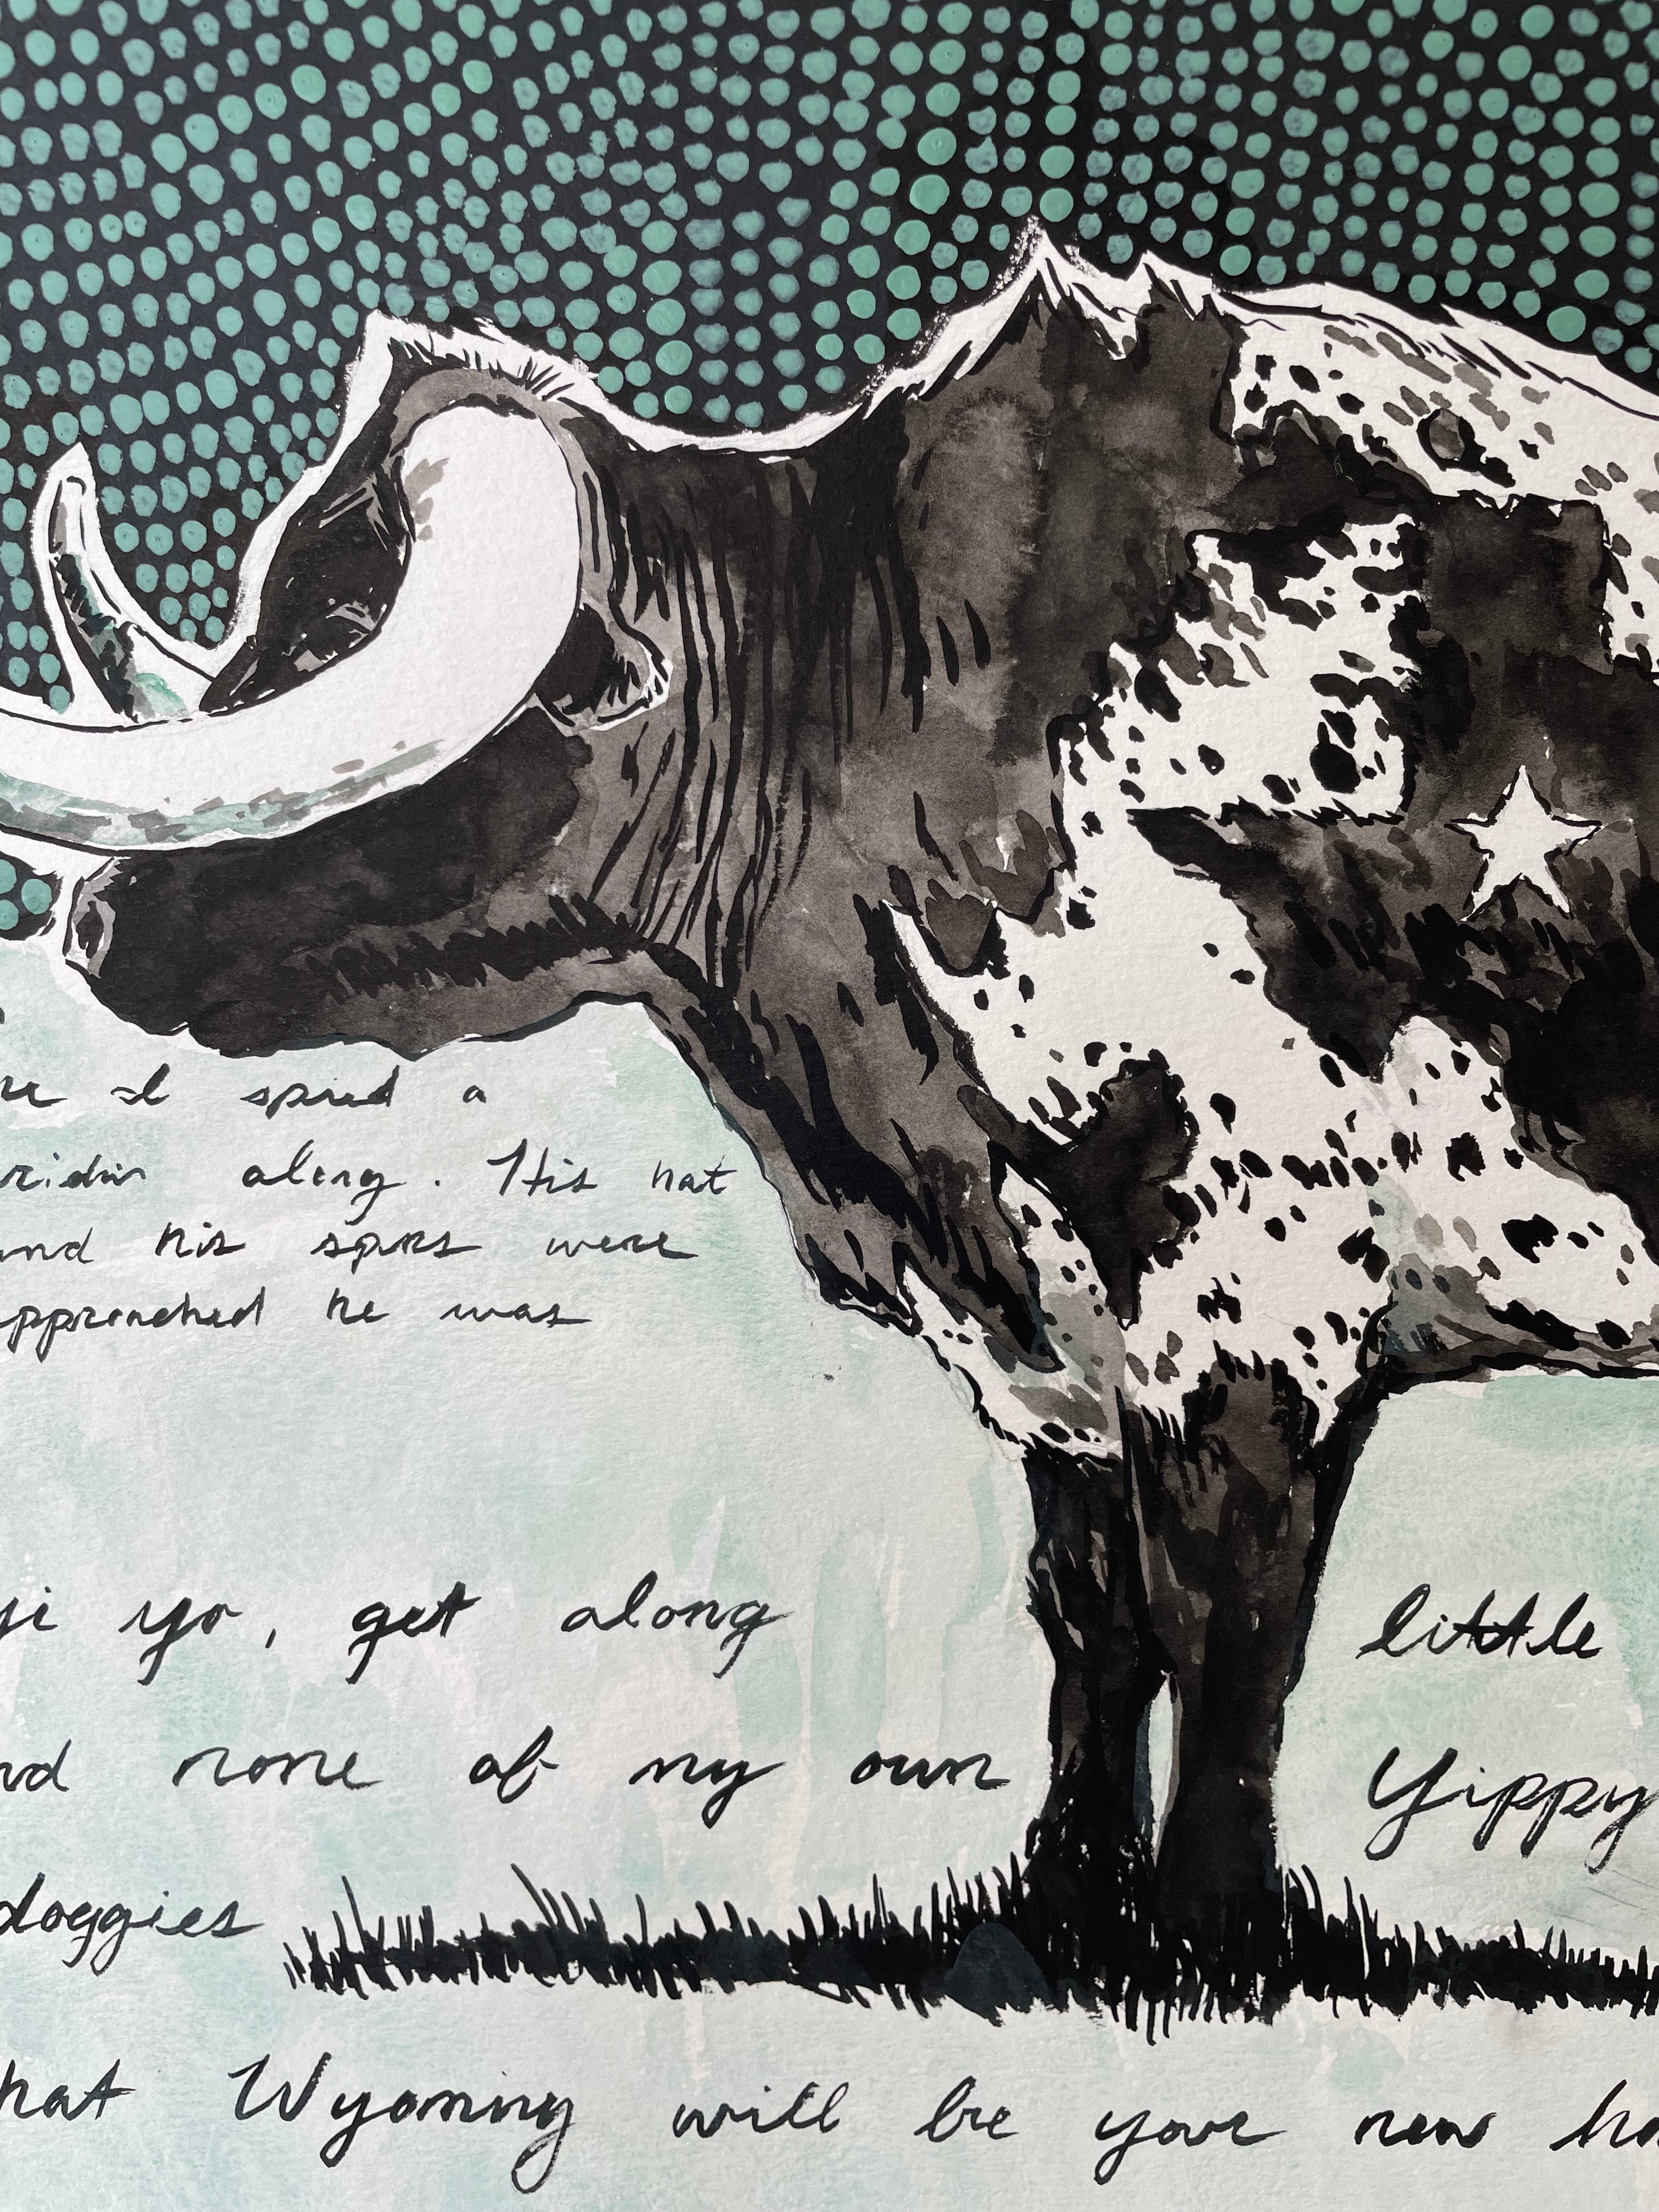 I spied a
ridin along. His hat
and his spurs were
approached he was
yi yo, get along little
none of my own Yippy
doggies
hat Wyoming will be your new ho